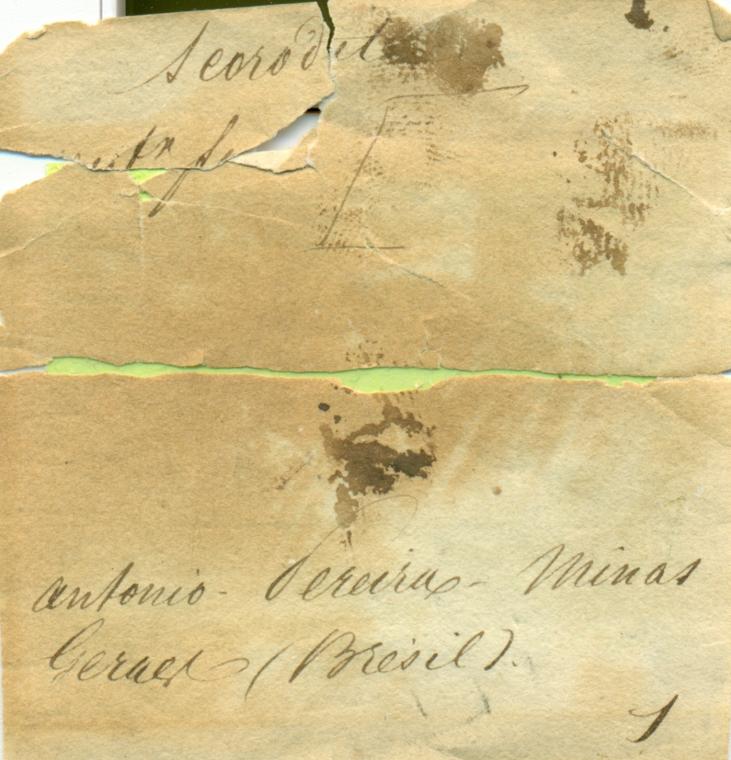 Scorodit
antonio - Pereira - Minas
Geraes (Brésil).
1